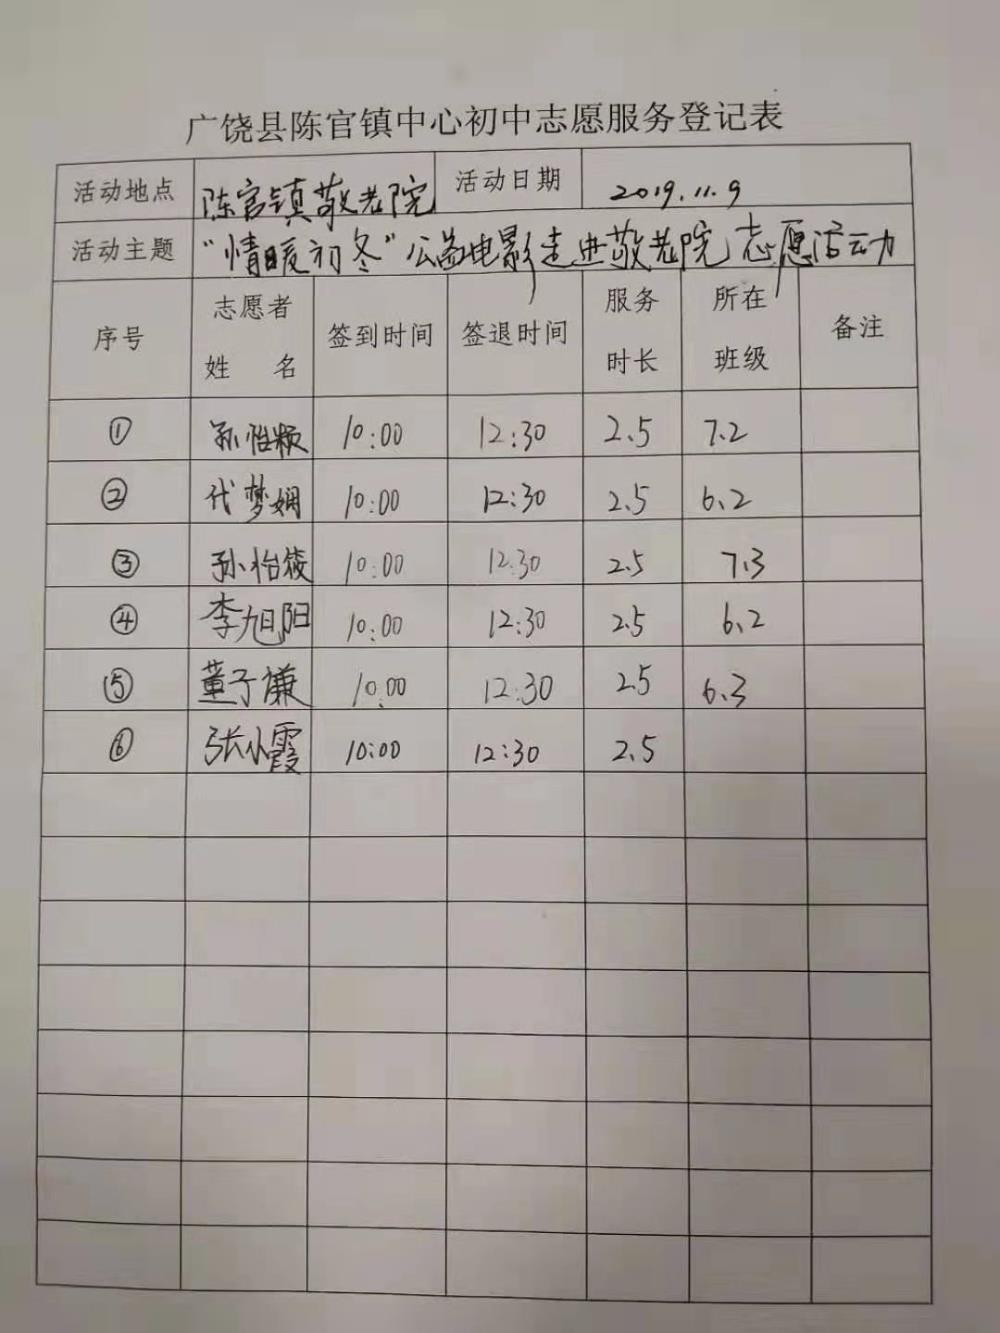 广饶县陈官镇中心初中志愿服务登记表
活动地点 陈官镇敬老院 活动日期 2019.11.9
活动主题 “情暖初冬”公益电影走进敬老院志愿活动
序号 志愿者姓 名 签到时间 签退时间 服务时长 所在班级 备注
① 孙怡颖 10:00 12:30 2.5 7.2
② 代梦娴 10:00 12:30 2.5 6.2
③ 孙怡筱 10:00 12:30 2.5 7.3
④ 李旭阳 10:00 12:30 2.5 6.2
⑤ 董子谦 10:00 12:30 2.5 6.3
⑥ 张小霞 10:00 12:30 2.5